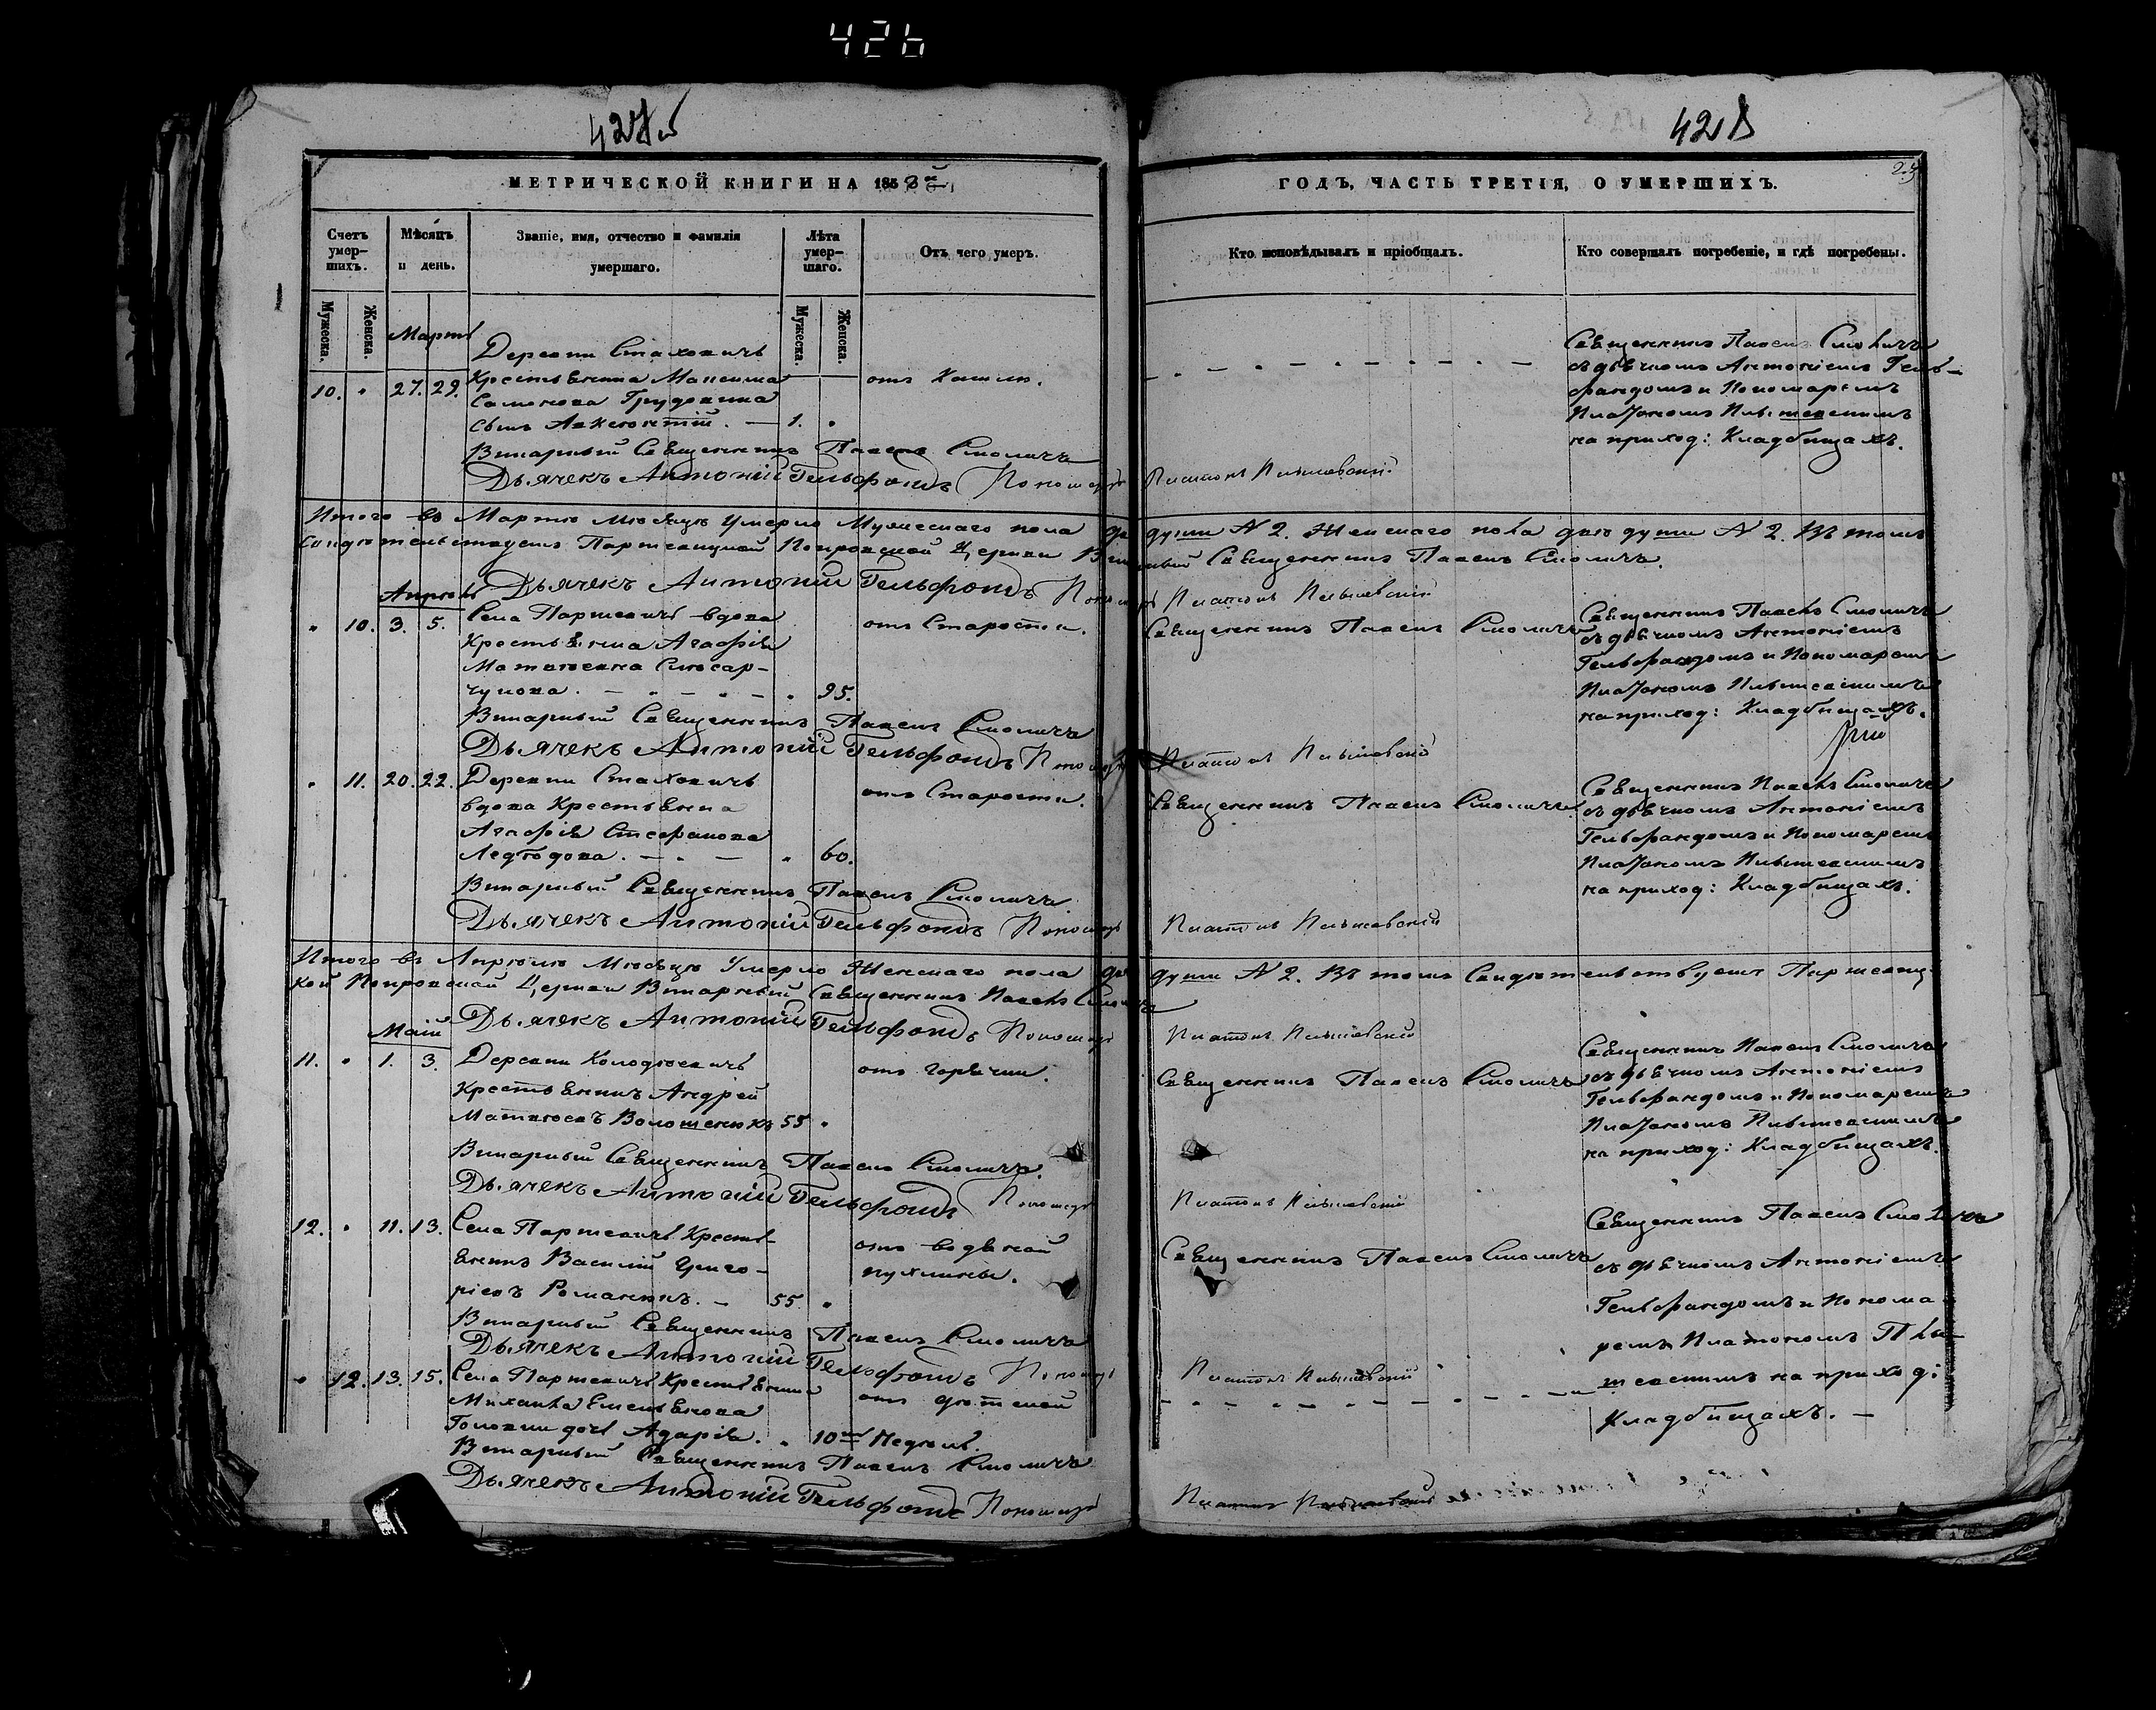 426
427 об
428
25
МЕТРИЧЕСКОЙ КНИГИ НА 1858й
ГОДЪ, ЧАСТЬ ТРЕТІЯ, О УМЕРШИХЪ.
Счетъ умер-
шихъ.
Мѣсяцъ
и день.
Званіе, имя, отчество и фамилія
умершаго.
Лѣта
умер-
шаго.
Отъ чего умеръ.
Кто исповѣдывалъ и пріобщалъ.
Кто совершалъ погребеніе, и гдѣ погребены.
Мужеска.
Женска.
Мужеска.
Женска.
Мартъ
10. " 27. 29.
Деревни Стаховичъ
Крестьянина Максима
Самонова Грудовика
сынъ Авксентій. — 1. "
отъ Кашли.
Священникъ Павелъ Смоличъ
съ дьячкомъ Антоніемъ Гель-
фандомъ и Пономаремъ
Платономъ
на приход: Кладбищахъ.
Викарный Священникъ Павелъ Смоличъ
Дьячекъ Антоній Гельфондъ Пономарь Платонъ
Итого въ Мартѣ Мѣсяцѣ Умерло Мужескаго пола двѣ души N 2. Женскаго пола двѣ души N 2. Въ томъ
свидѣтельствуетъ Паршевицкой Покровской Церкви Викарный Священникъ Павелъ Смоличъ.
Дьячекъ Антоній Гельфондъ Пономарь Платонъ
Апрѣль
" 10. 3. 5.
Села Паршевичъ вдова
Крестьянка Агафія
Матвѣевна Слюсар-
чукова. — " — " — " 95.
отъ Старости.
Священникъ Павелъ Смоличъ
Священникъ Павелъ Смоличъ
съ дьячкомъ Антоніемъ
Гельфандомъ и Пономаремъ
Платономъ
на приход: Кладбищахъ.
Викарный Священникъ Павелъ Смоличъ
Дьячекъ Антоній Гельфондъ Пономарь Платонъ
" 11. 20. 22.
Деревни Стаховичъ
вдова Крестьянка
Агафія Стефанова
— " — " 60.
отъ Старости.
Священникъ Павелъ Смоличъ
Священникъ Павелъ Смоличъ
съ дьячкомъ Антоніемъ
Гельфандомъ и Пономаремъ
Платономъ
на приход: Кладбищахъ.
Викарный Священникъ Павелъ Смоличъ
Дьячекъ Антоній Гельфондъ Пономарь Платонъ
Итого въ Апрѣлѣ Мѣсяцѣ Умерло Женскаго пола двѣ души N 2. Въ томъ Свидѣтельствуетъ Паршевиц-
кой Покровской Церкви Викарный Священникъ Павелъ Смоличъ
Дьячекъ Антоній Гельфондъ Пономарь Платонъ
Маій
11. " 1. 3.
Деревни Колодѣевичъ
Крестьянинъ Андрей
Матвѣевъ Волошенюкъ 55 "
отъ горячки.
Священникъ Павелъ Смоличъ
Священникъ Павелъ Смоличъ
съ дьячкомъ Антоніемъ
Гельфандомъ и Пономаремъ
Платономъ
на приход: Кладбищахъ.
Викарный Священникъ Павелъ Смоличъ.
Дьячекъ Антоній Гельфондъ Пономарь Платонъ
12. " 11. 13.
Села Паршевичъ Кресть-
янинъ Василій Григо-
ріевъ Романюкъ. — 55. "
отъ водяной
пухлины.
Священникъ Павелъ Смоличъ
Священникъ Павелъ Смоличъ
съ дьячкомъ Антоніемъ
Гельфандомъ и Понома-
ремъ Платономъ
на приход:
Кладбищахъ. —
Викарный Священникъ Павелъ Смоличъ
Дьячекъ Антоній Гельфондъ Пономарь Платонъ
" 12. 13. 15.
Села Паршевичъ Крестьянина
Михаила Емельянова
дочь " 10ти Недѣль.
отъ дѣтской
Викарный Священникъ Павелъ Смоличъ
Дьячекъ Антоній Гельфондъ Пономарь Платонъ